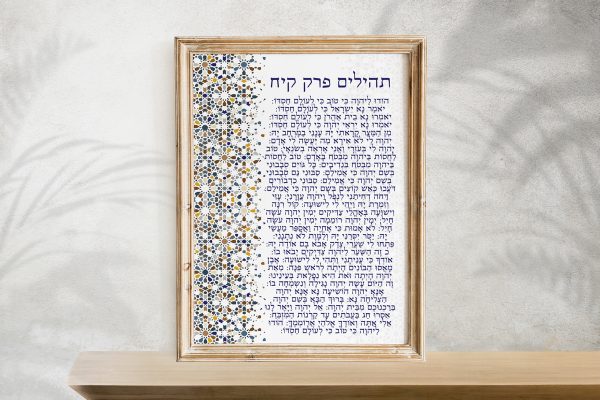 תהילים פרק קיח
הודו ליהוה כי טוב כי לעולם חסדו:
יאמר נא ישראל כי לעולם חסדו:
יאמרו נא בית אהרן כי לעולם חסדו:
יאמרו נא יראי יהוה כי לעולם חסדו:
מן המצר קראתי יה ענני במרחב יה:
יהוה לי לא אירא מה יעשה לי אדם:
יהוה לי בעזרי ואני אראה בשנאי: טוב
לחסות ביהוה מבטח באדם: טוב לחסות
ביהוה מבטח בנדיבים: כל גוים סבבוני
בשם יהוה כי אמילם: סבוני גם סבבוני
בשם יהוה כי אמילם: סבוני כדבורים
דעכו כאש קוצים בשם יהוה כי אמילם:
דחה דחיתני לנפל ויהוה עזרני: עזי
וזמרת יה ויהי לי לישועה: קול רנה
וישועה באהלי צדיקים ימין יהוה עשה
חיל: ימין יהוה רוממה ימין יהוה עשה
חיל: לא אמות כי אחיה ואספר מעשי
יה: יסר יסרני יה ולמות לא נתנני:
פתחו לי שערי צדק אבא בם אודה יה:
זה השער ליהוה צדיקים יבאו בו:
אודך כי עניתני ותהי לי לישועה: אבן
מאסו הבונים היתה לראש פנה: מאת
יהוה היתה זאת היא נפלאת בעינינו:
זה היום עשה יהוה נגילה ונשמחה בו:
אנא יהוה הושיעה נא אנא יהוה
הצליחה נא: ברוך הבא בשם יהוה
ברכנוכם מבית יהוה: אל יהוה ויאר לנו
אסרו חג בעבתים עד קרנות המזבח:
אלי אתה ואודך אלהי ארוממך: הודו
ליהוה כי טוב כי לעולם חסדו: